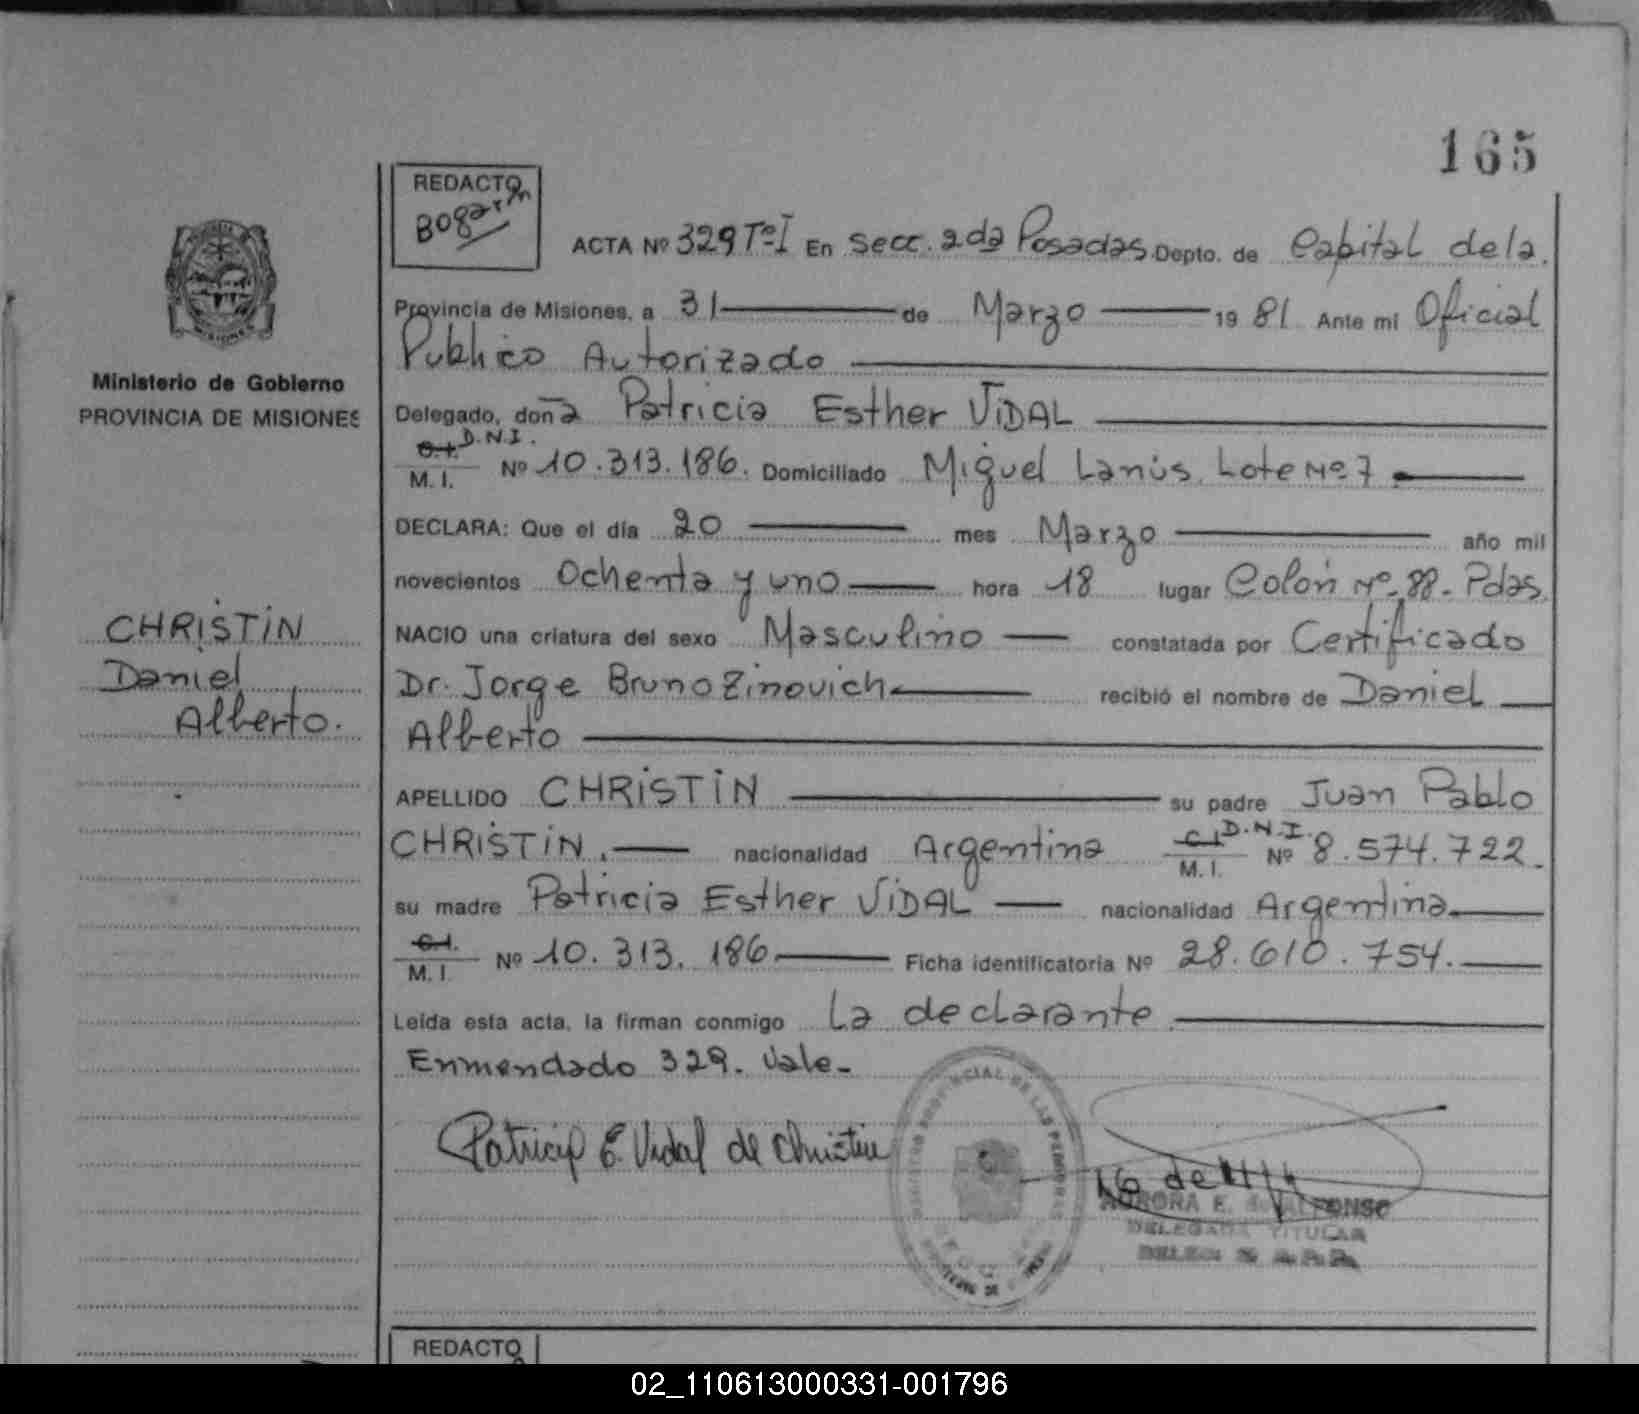 165
REDACTO
Bogarin
ACTA Nº 329 Tº I En secc. 2da Posadas Depto. de Capital de la
Provincia de Misiones, a 31 de Marzo 1981 Ante mi Oficial
Publico Autorizado
Ministerio de Gobierno
PROVINCIA DE MISIONES
Delegado, doña Patricia Esther ViDAL
C.I. D.N.I.
M. I. Nº 10.313.186. Domiciliado Miguel Lanús. Lote Nº 7.
DECLARA: Que el día 20 mes Marzo año mil
novecientos Ochenta y uno hora 18 lugar Colón Nº 88- Pdas.
CHRiSTiN
Daniel
Alberto.
NACIO una criatura del sexo Masculino constatada por Certificado
Dr. Jorge Bruno Zinovich recibió el nombre de Daniel
Alberto
APELLIDO CHRiSTiN su padre Juan Pablo
CHRiSTiN. nacionalidad Argentina C.I. D.N.I. M. I. Nº 8.574.722.
su madre Patricia Esther ViDAL nacionalidad Argentina.
C.I. M. I. Nº 10.313.186 Ficha identificatoria Nº 28.610.754.
Leída esta acta, la firman conmigo La declarante
Enmendado 329. Vale-
Patricia E. Vidal de Christin
DELEGADA TITULAR
REDACTO
02_110613000331-001796